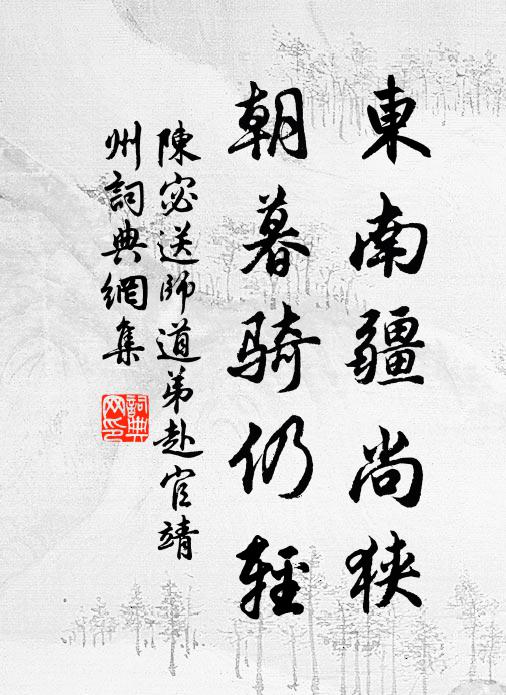 東南疆尚狹
朝暮騎仍輕
陳宓送師道弟赴官靖
州詞典網集
詞典網印